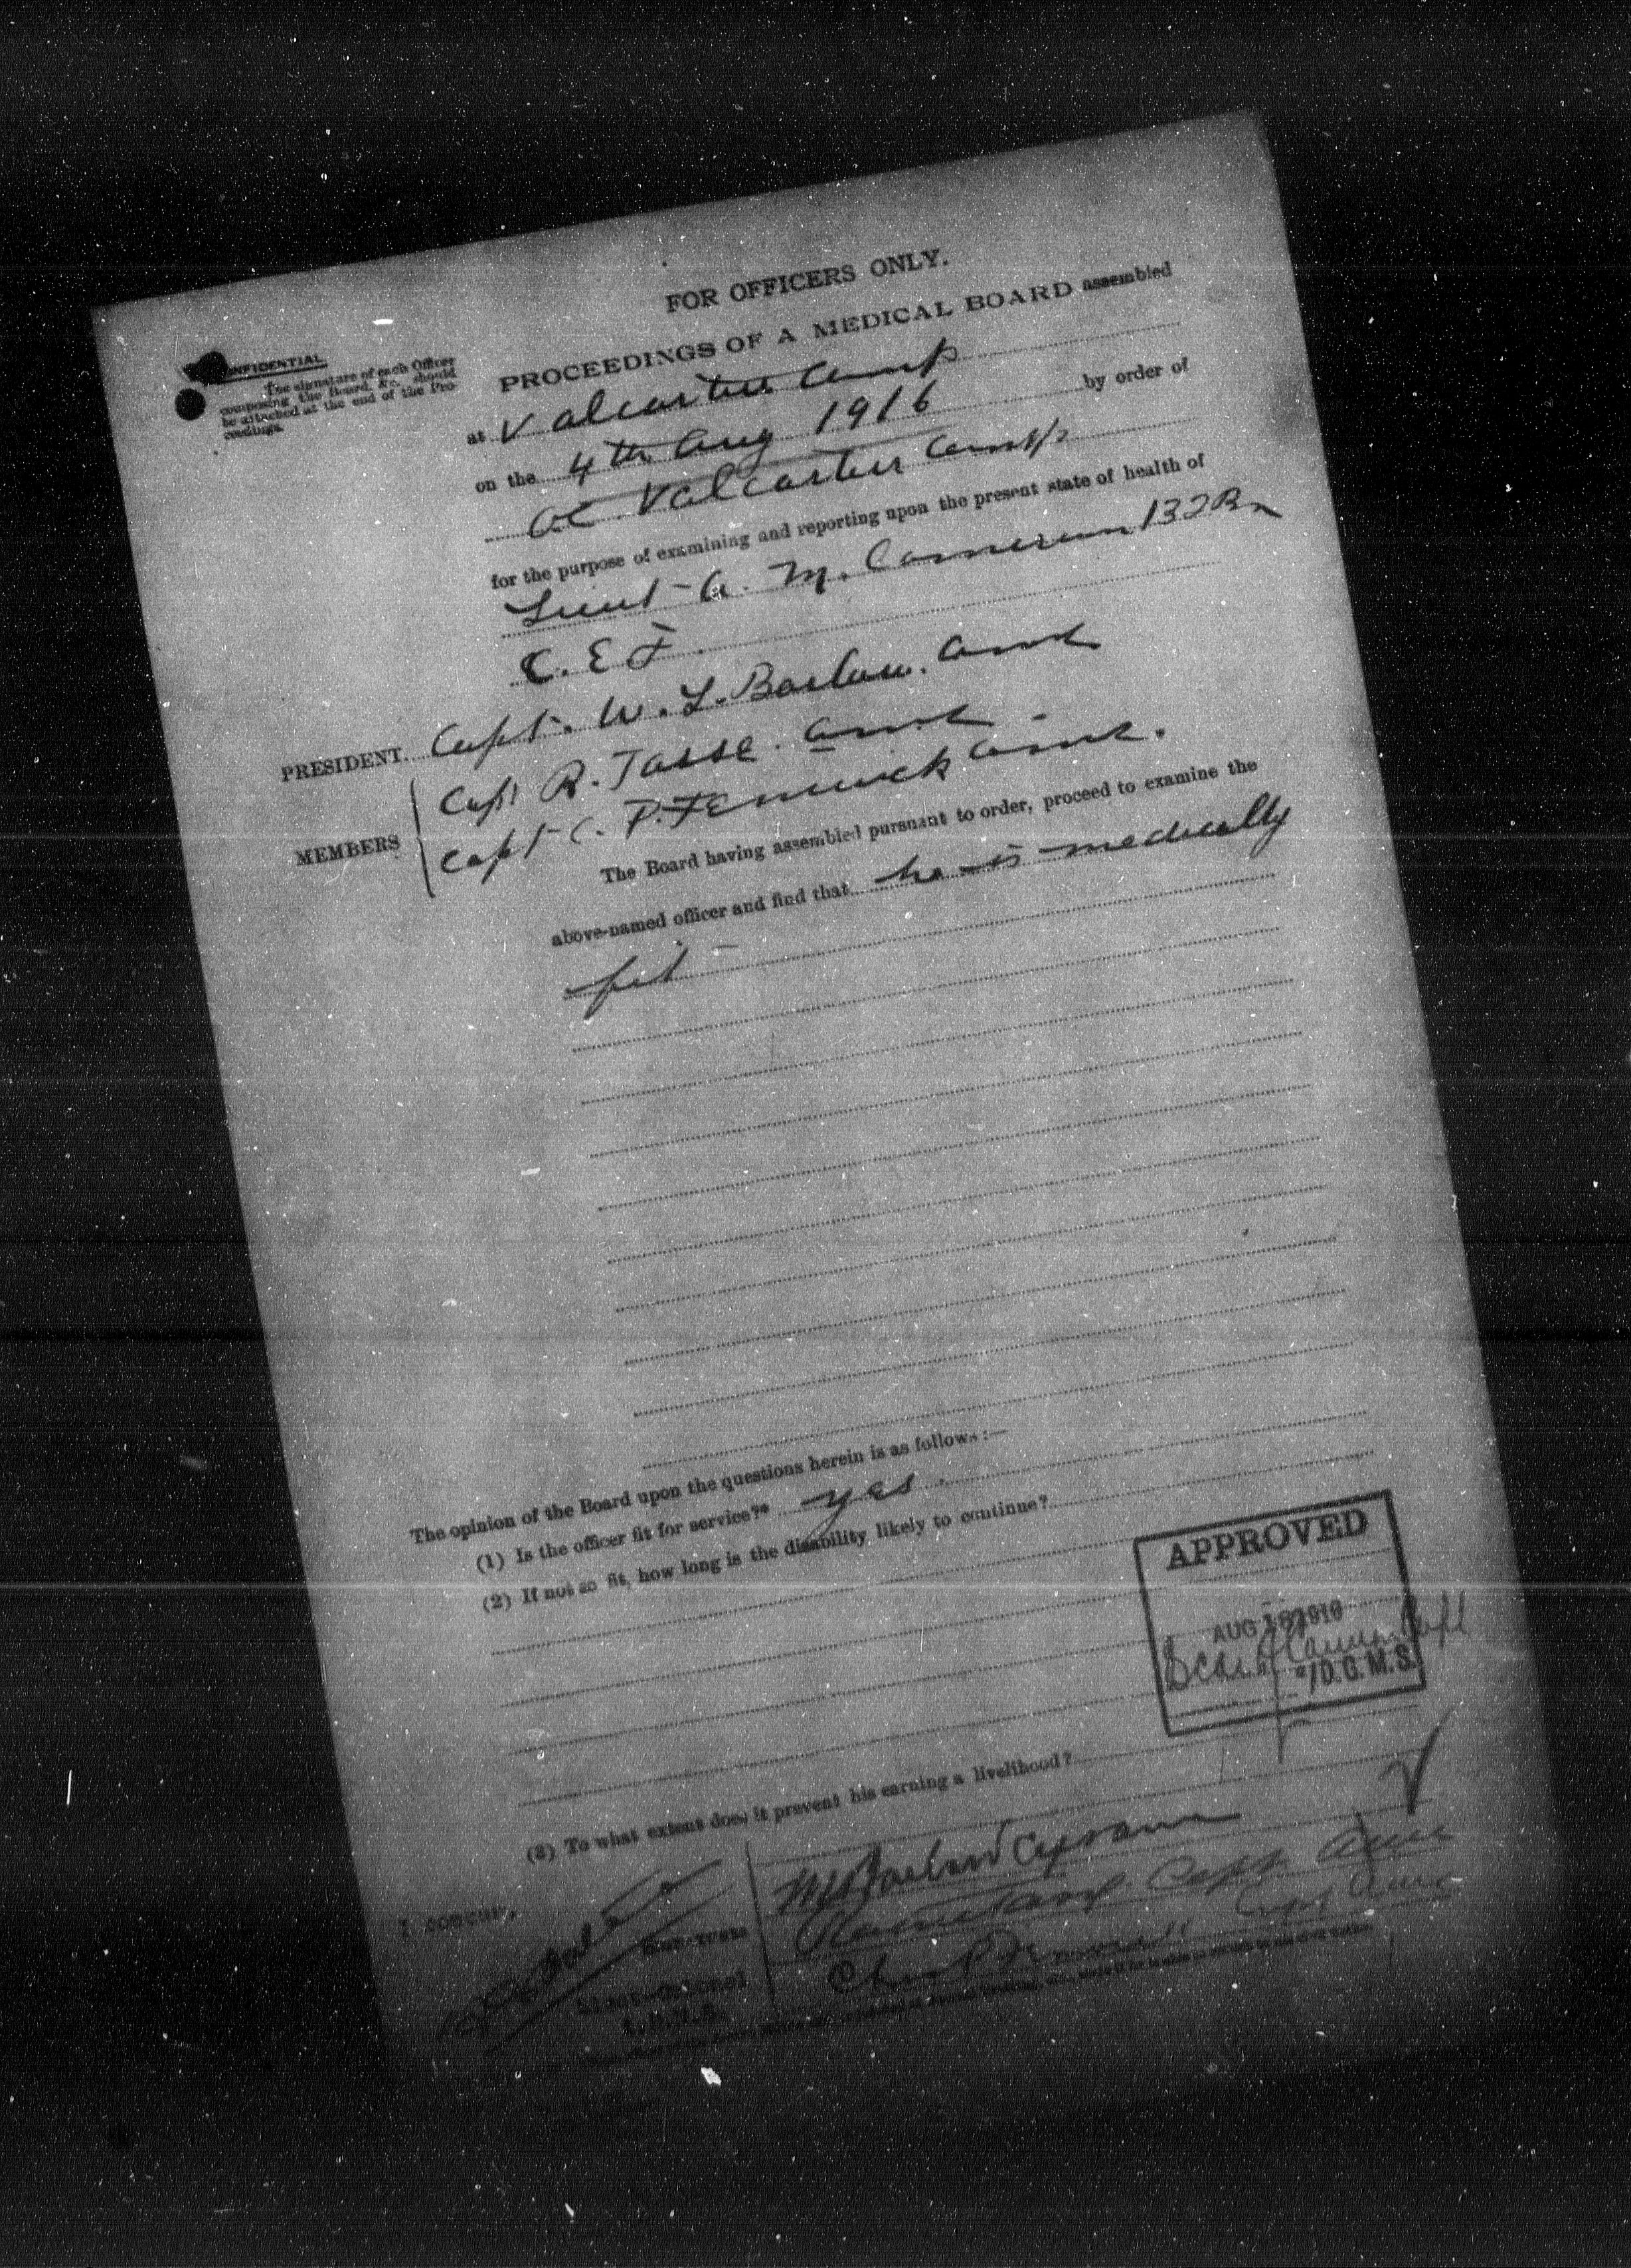 FOR OFFICERS ONLY.
CONFIDENTIAL
The signature of each Officer
composing the Board, &c., should
be attached at the end of the Pro-
ceedings.
PROCEEDINGS OF A MEDICAL BOARD assembled
at Valcartier Camp
on the 4th Aug 1916 by order of
OC Valcartier Camp
for the purpose of examining and reporting upon the present state of health of
Lieut A. M. Cameron 132 Bn
C.E.F.
PRESIDENT. Capt. W. L. Barlow. amc
MEMBERS
Capt R. Tasse. amc
Capt C. P. Fenwick amc.
The Board having assembled pursuant to order, proceed to examine the
above-named officer and find that he is medically
fit
The opinion of the Board upon the questions herein is as follows:—
(1) Is the officer fit for service?* yes.
(2) If not so fit, how long is the disability likely to continue?
APPROVED
AUG 1916
D.G.M.S.
(3) To what extent does it prevent his earning a livelihood?
I concur.
Capt amc
Capt. amc
Signatures
Capt amc
Lieut-Colonel
A.D.M.S.